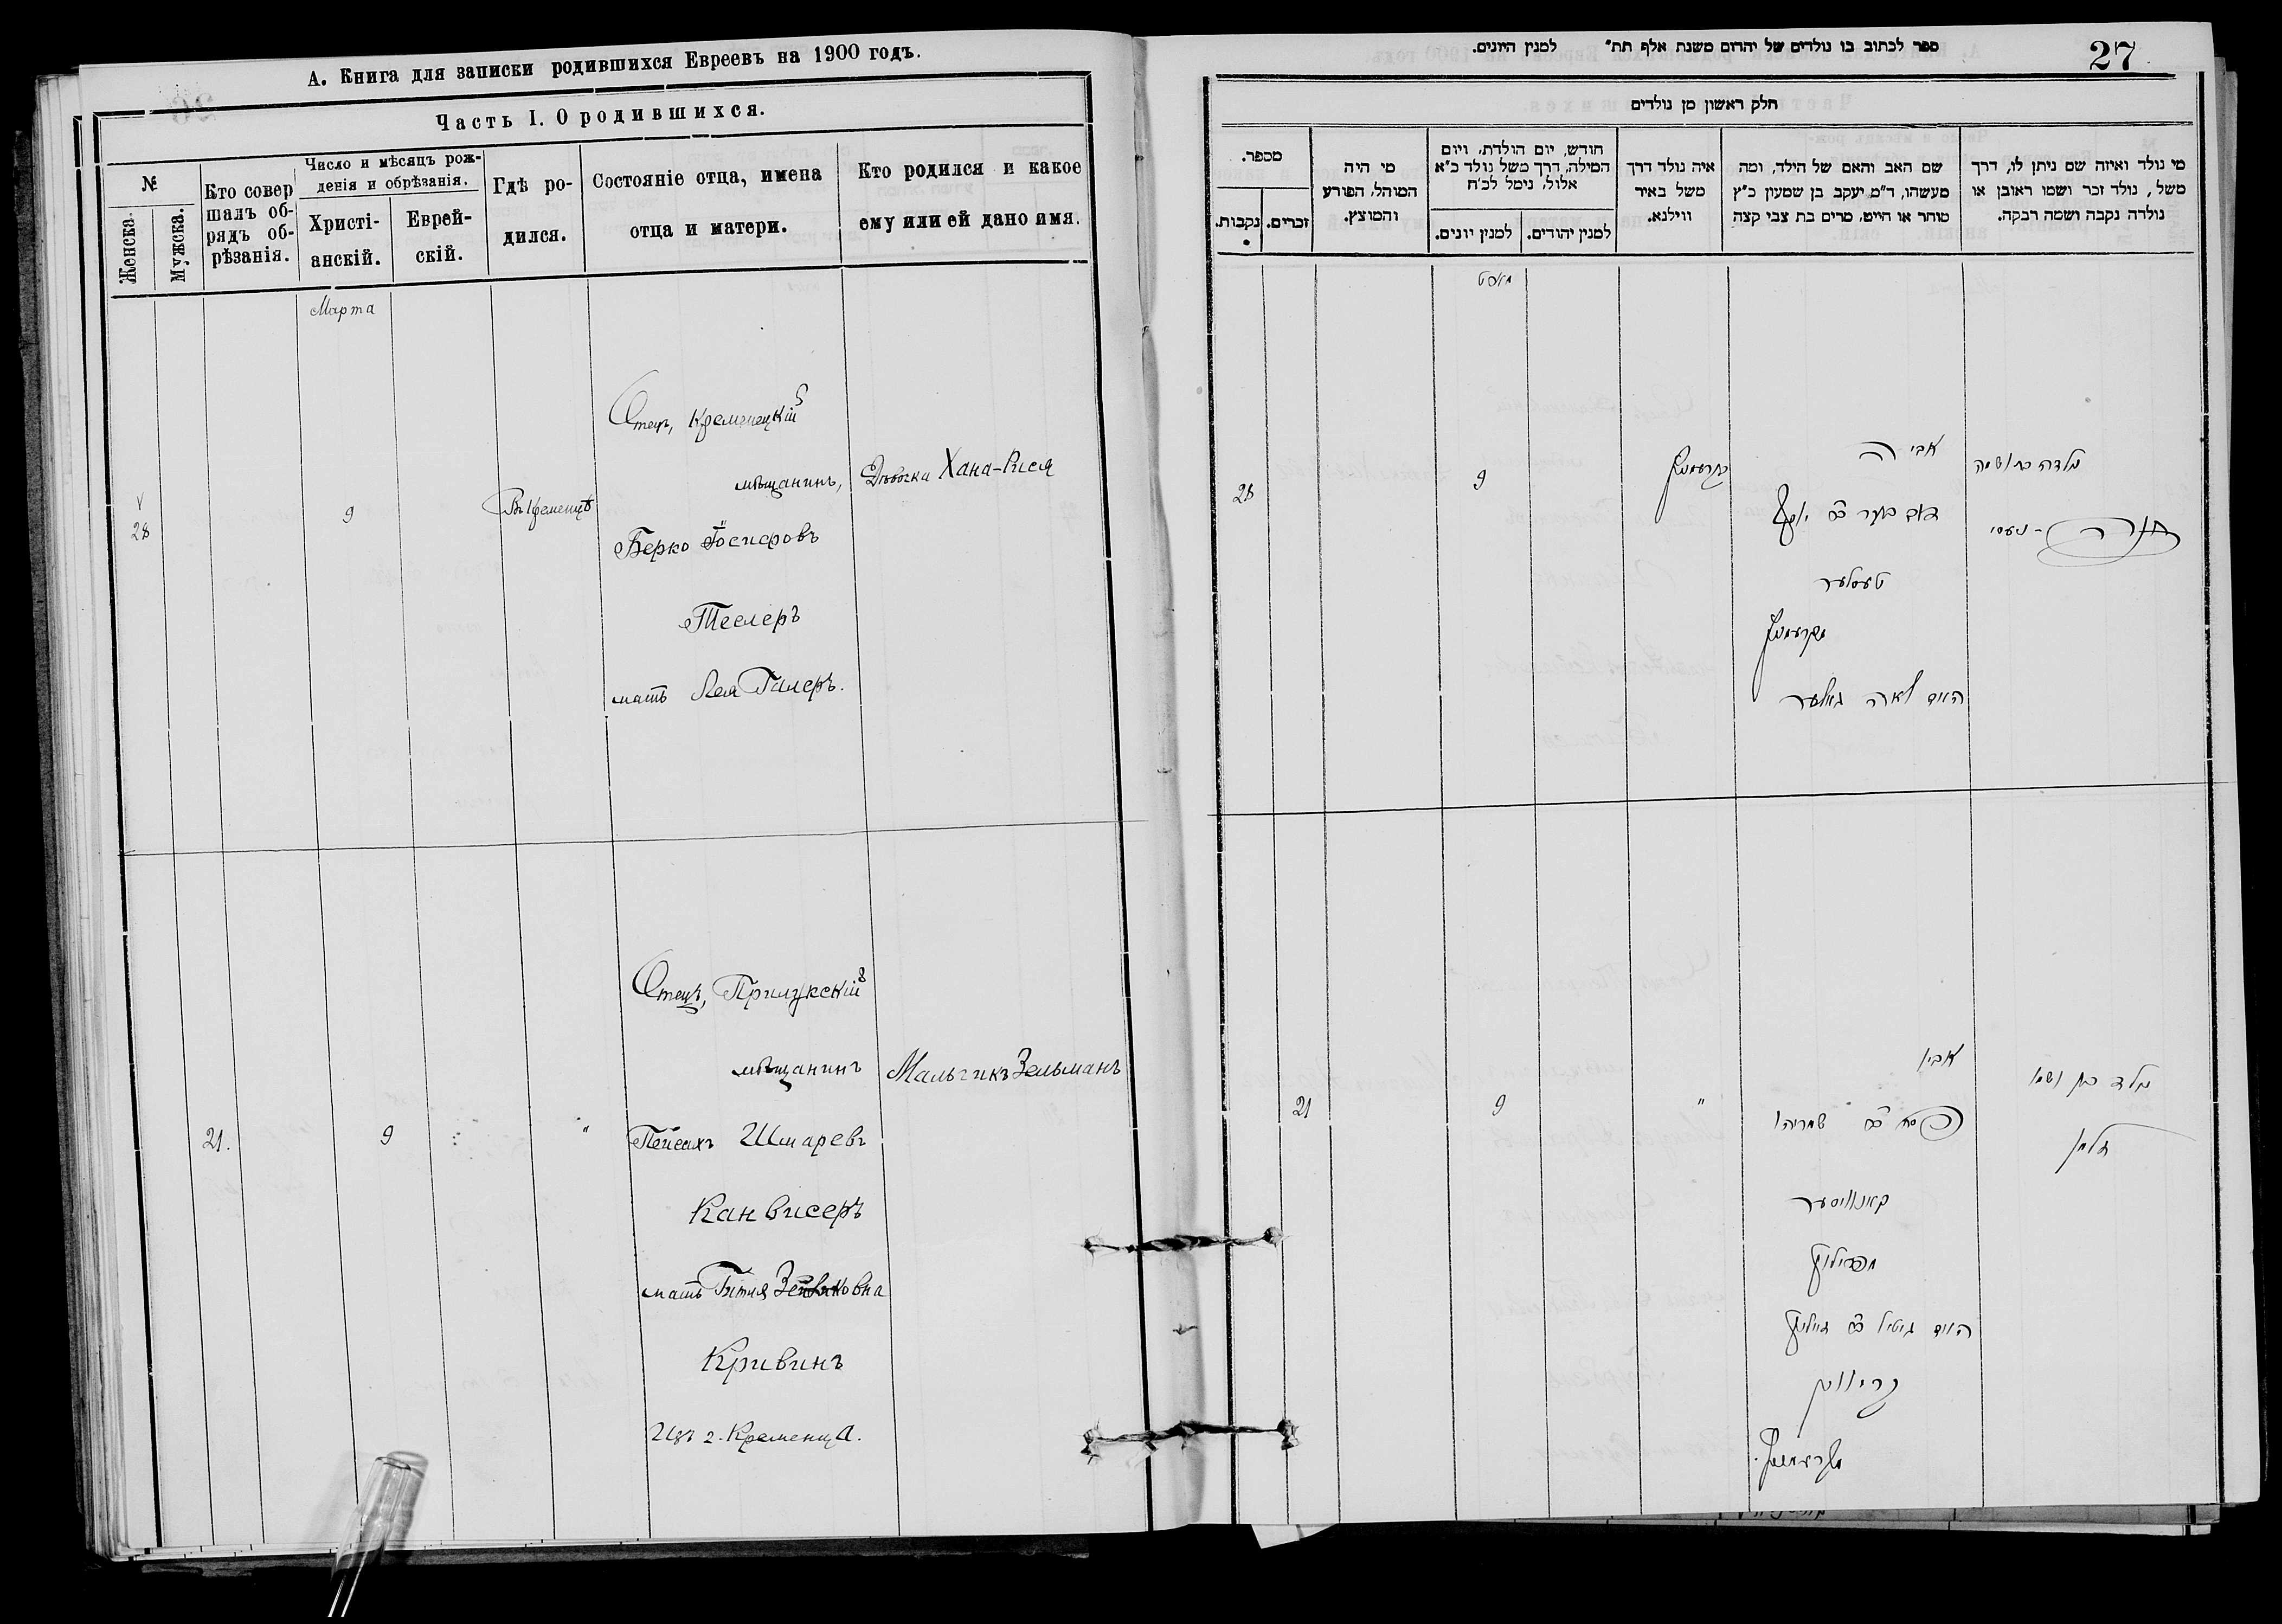 А. Книга для записки родившихся Евреевъ на 1900 годъ.
Часть I. О родившихся.
№
Женска.
Мужска.
Кто совер
шалъ об-
рядъ об-
рѣзанія.
Число и мѣсяцъ рож-
денія и обрѣзанія.
Христі-
анскій.
Еврей-
скій.
Гдѣ ро-
дился.
Состояніе отца, имена
отца и матери.
Кто родился и какое
ему или ей дано имя.
Марта
28
9
Въ Кременцѣ
Отецъ, Кременецкій
мѣщанинъ,
Берко Іосифовъ
Теслеръ
мать Лея Галеръ.
Дѣвочка Хана-Нися
21.
9
"
Отецъ, Прилукскій
мѣщанинъ
Пейсахъ Шмарев
Канвисеръ
мать Гитля
Кривинъ
Изъ г. Кременца.
Мальчикъ Зельманъ
ספר לכתוב בו נולדים של יהדום משנת אלף תת״ למנין היונים.
27
חלק ראשון מן נולדים
מספר.
נקבות.
זכרים.
מי היה
המוהל, הפורע
והמוצץ.
חודש, יום הולדת, ויום
המילה, דרך משל נולד כ״א
אלול, נימל לכ״ח
למנין יונים.
למנין יהודים.
איה נולד דרך
משל באיר
ווילנא.
שם האב והאם של הילד, ומה
מעשהו, ד״מ יעקב בן שמעון כ״ץ
סוחר או חייט, מרים בת צבי קצה
מי נולד ואיזה שם ניתן לו, דרך
משל, נולד זכר ושמו ראובן או
נולדה נקבה ושמה רבקה.
מארט
28
9
קרעמניץ
אביה
דוב בער ב״ר יוסף
טעסלער
מקרעמניץ
האם לאה גאלער
נולדה בת ושמה
חנה - ניסי
21
9
"
אביו
פסח ב״ר שמריהו
קאנוויסער
מפרילוק
האם גיטיל
קריווין
מקרעמניץ.
נולד בן ושמו
זלמן